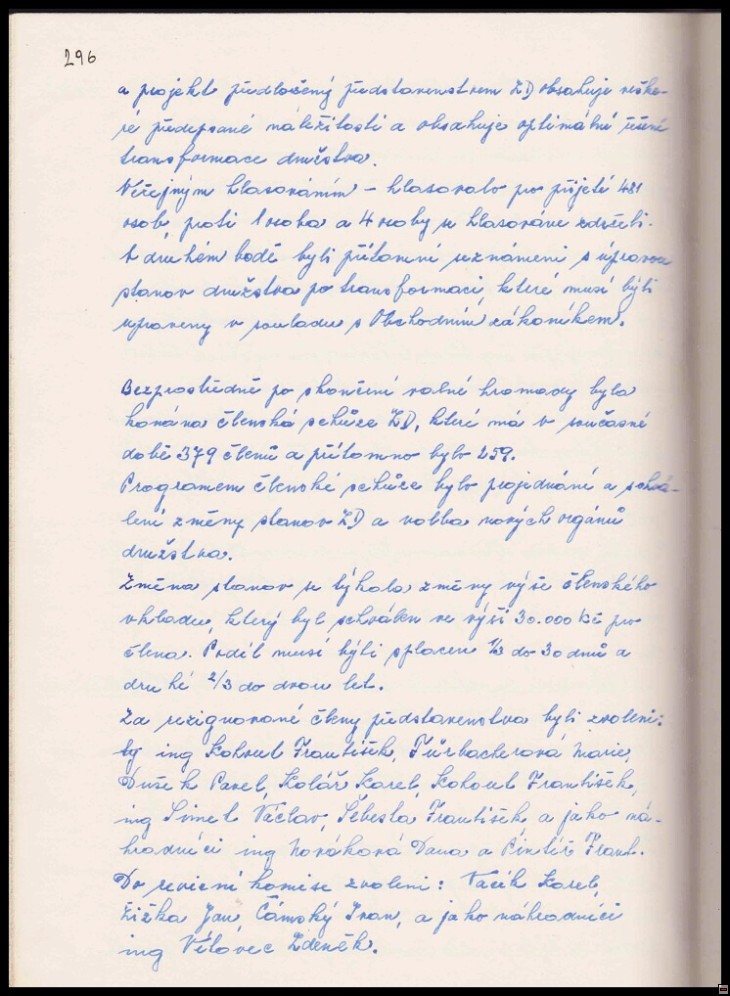 296
a projekt předložený představenstvem ZD obsahuje veške-
ré předepsané náležitosti a obsahuje optimální řešení
transformace družstva.
Veřejným hlasováním - hlasovalo pro přijetí 481
osob, proti 1 osoba a 4 osoby se hlasování zdrželi.
V druhém bodě byli přítomní seznámeni s úpravou
stanov družstva po transformaci, které musí býti
upraveny v souladu s Obchodním zákoníkem.
Bezprostředně po skončení valné hromady byla
konána členská schůze ZD, které má v současné
době 379 členů a přítomno bylo 259.
Programem členské schůze bylo projednání a schvá-
lení změny stanov ZD a volba nových orgánů
družstva.
Změna stanov se týkala změny výše členského
vkladu, který byl schválen ve výši 30.000 Kč pro
člena. Podíl musí býti splacen 1/3 do 30 dnů a
druhé 2/3 do dvou let.
Za rezignované členy představenstva byli zvoleni:
ing Kohout František, Fürbacherová Marie,
Dušek Pavel, Kolář Karel, Kohout František,
ing Šimel Václav, Šebesta František a jako ná-
hradníci ing Nováková Dana a Pintíř Frant.
Do revizní komise zvoleni: Vacík Karel,
Žižka Jan, Čámský Ivan, a jako náhradníci
ing Větovec Zdeněk.